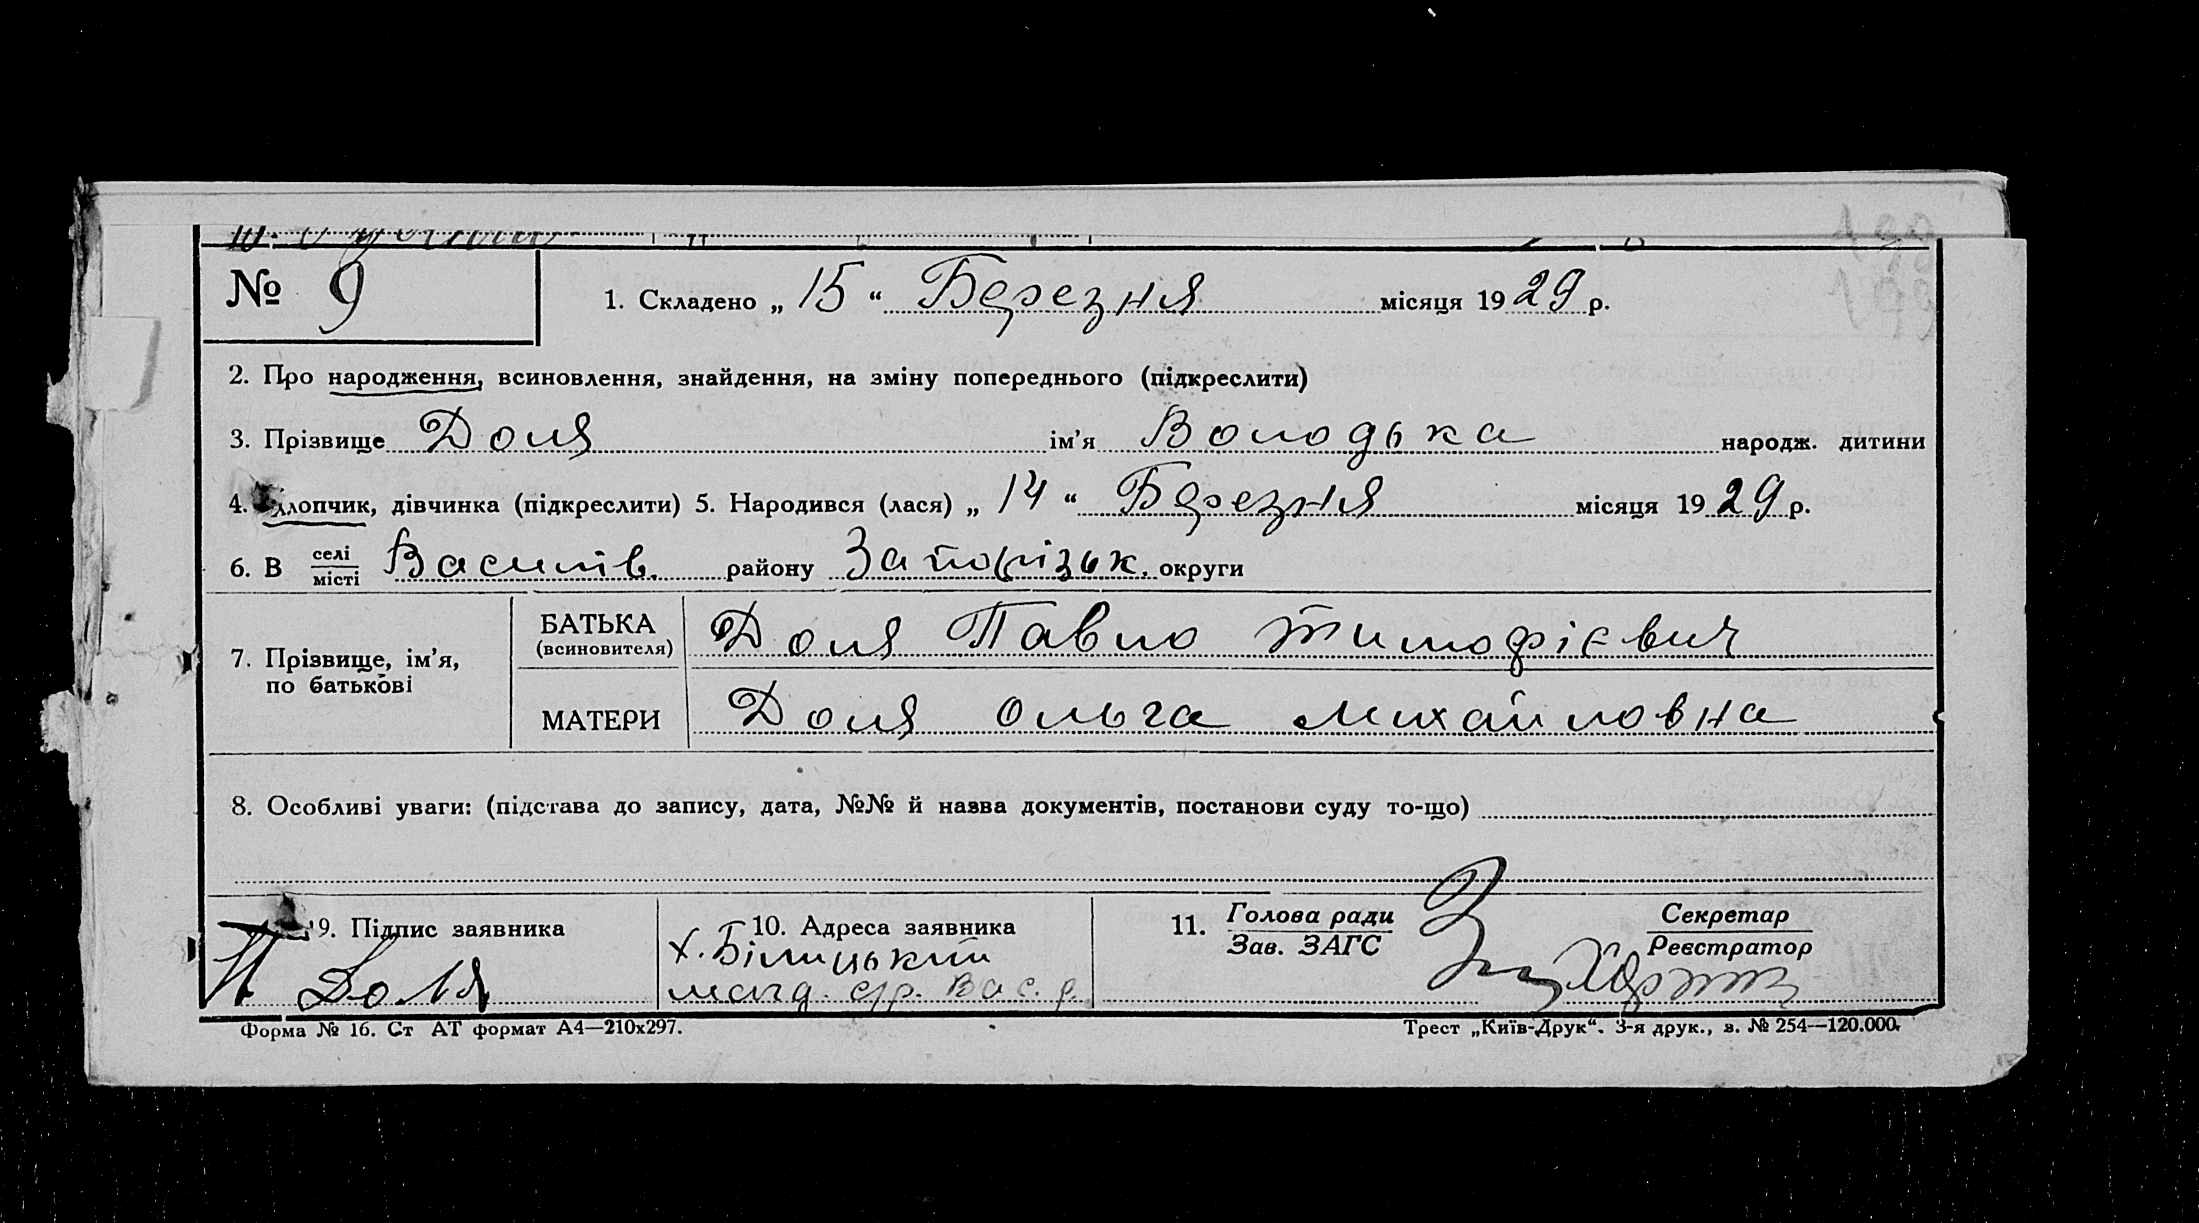 № 9
1. Складено „ 15 “ Березня місяця 1929 р.
2. Про народження, всиновлення, знайдення, на зміну попереднього (підкреслити)
3. Прізвище Доля ім’я Володька народж. дитини
4. хлопчик, дівчинка (підкреслити) 5. Народився (лася) „ 14 “ Березня місяця 1929 р.
6. В селі місті Василів. району Запорізьк. округи
7. Прізвище, ім’я, по батькові
БАТЬКА (всиновителя) Доля Павло Тимофієвич
МАТЕРИ Доля Ольга Михайловна
8. Особливі уваги: (підстава до запису, дата, №№ й назва документів, постанови суду то-що)
9. Підпис заявника
Доля
10. Адреса заявника
х. Білицький
магд. с/р. Вас. р.
11. Голова ради
Зав. ЗАГС
Секретар
Реєстратор
Форма № 16. Ст АТ формат А4—210х297.
Трест „Київ-Друк“. 3-я друк., з. № 254—120.000.